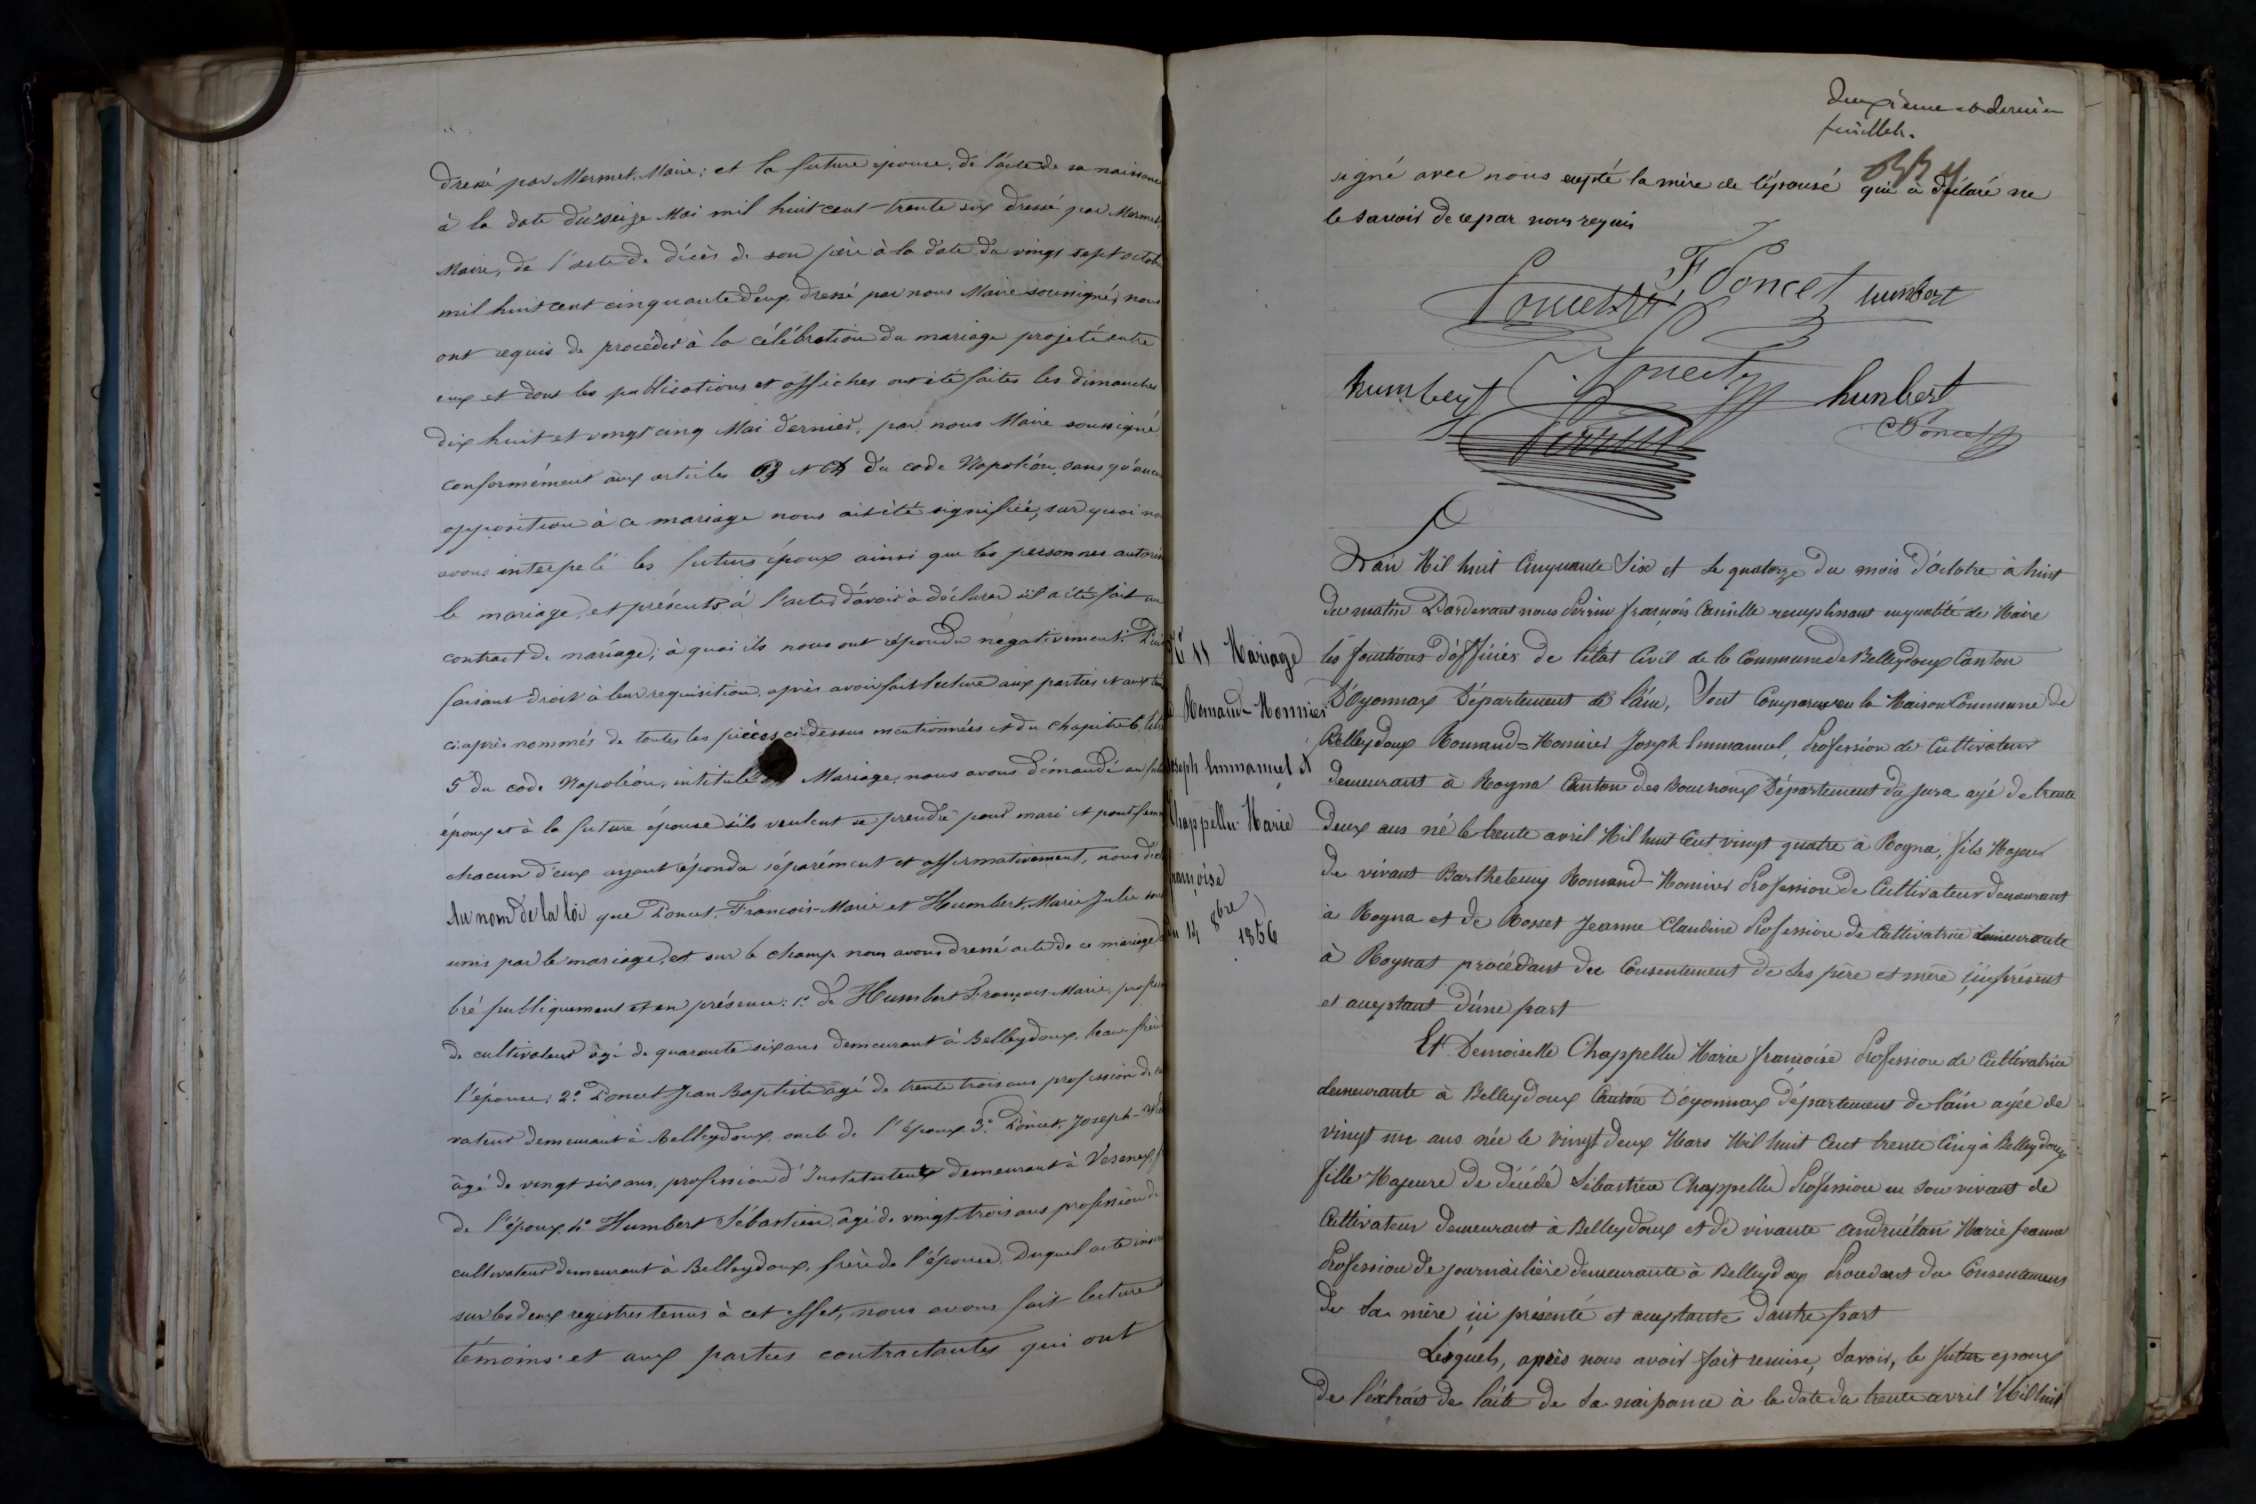 dressé par Mermet, Maire; et la future épouse, de l'acte de sa naissance
à la date du seize Mai mil huit cent trente six dressé par Mermet,
Maire, de l'acte de décès de son père à la date du vingt sept octobre
mil huit cent cinquante deux dressé par nous Maire soussigné; nous
ont requis de procéder à la célébration du mariage projeté entre
eux et dont les publications et affiches ont été faites les dimanches
dix huit et vingt cinq Mai dernier, par nous Maire soussigné
conformément aux articles 63 et 64 du code Napoléon, sans qu'aucune
opposition à ce mariage nous ait été signifiée, sur quoi nous
avons interpelé les futurs époux ainsi que les personnes autoris
le mariage, et présents à l'acte, d'avoir à déclarer s'il a été fait un
contract de mariage; à quoi ils nous ont répondu négativement.
faisant droit à leur requisition, après avoir fait lecture aux parties et aux
ci-après nommés de toutes les pièces ci-dessus mentionnées et du chapitre 6
5 du code Napoléon, intitulé Mariage, nous avons demandé au futur
époux et à la future épouse s'ils veulent se prendre pour mari et pour femme
chacun d'eux ayant répondu séparément et affirmativement, nous
Au nom de la loi que Poncet, François-Marie et Humbert, Marie Julie sont
unis par le mariage, et sur le champ nous avons dressé acte de ce mariage
bré publiquement et en présence: 1° de Humbert François-Marie, profession
de cultivateur âgé de quarante six ans demeurant à Belleydoux, beau-frère
l'épouse; 2° Poncet Jean Baptiste âgé de trente trois ans profession de
vateur demeurant à Belleydoux, oncle de l'époux 3° Poncet, Joseph
âgé de vingt six ans, profession d'Instituteur demeurant à
de l'époux 4° Humbert Sébastien, âgé de vingt-trois ans profession de
cultivateur demeurant à Belleydoux, frère de l'épouse. Duquel acte
sur les deux registres tenus à cet effet, nous avons fait lecture
témoins et aux parties contractantes qui ont
deuxième et dernier
feuillet.
signé avec nous excepté la mère de l'épousé qui à déclaré ne
le savoir de ce par nous requis
Poncet F Poncet humbert
humbert Poncet hunbert
Perrin Poncet
L'an Mil huit Cinquante Six et le quatorze du mois d'octobre à huit
du matin Pardevant nous Perrin françois Camille remplissant en qualité de Maire
les fonctions d'officier de l'état Civil de la Commune de Belleydoux Canton
D'oyonnax Département de l'ain, Sont Comparus en la Maison Commune de
Belleydoux Romand=Monnier Joseph Emmanuel, Profession de Cultivateur
demeurant à Rogna Canton des Bouchoux Département du Jura agé de trente
deux ans né le trente avril Mil huit Cent vingt quatre à Rogna, fils Majeur
de vivant Barthelemy Romand-Monnier Profession de Cultivateur demeurant
à Rogna et de Rosset Jeanne Claudine Profession de Cultivatrice demeurante
à Rognat procédant du Consentement de ses père et mère ici présent
et acceptant d'une part
Et Demoiselle Chappellu Marie françoise Profession de Cultivatrice
demeurante à Belleydoux Canton D'oyonnax département de l'ain agée de
vingt un ans née le vingt deux Mars Mil huit Cent trente Cinq à Belleydoux
fille Majeure de décédé Sébastien Chappellu Profession en son vivant de
Cultivateur demeurant à Belleydoux et de vivante andruétan Marie Jeanne
Profession de journalière demeurante à Belleydoux Procedant du Consentement
de sa mère ici présenté et acceptante d'autre part
Lesquels, après nous avoir fait remise, Savoir, le futur epoux
de l'éxtrait de l'acte de sa naissance à la date du trente avril Mil huit
N° 11 Mariage
Romand-Monnier
Joseph Emmanuel et
Chappellu Marie
françoise
du 14 8bre
1856